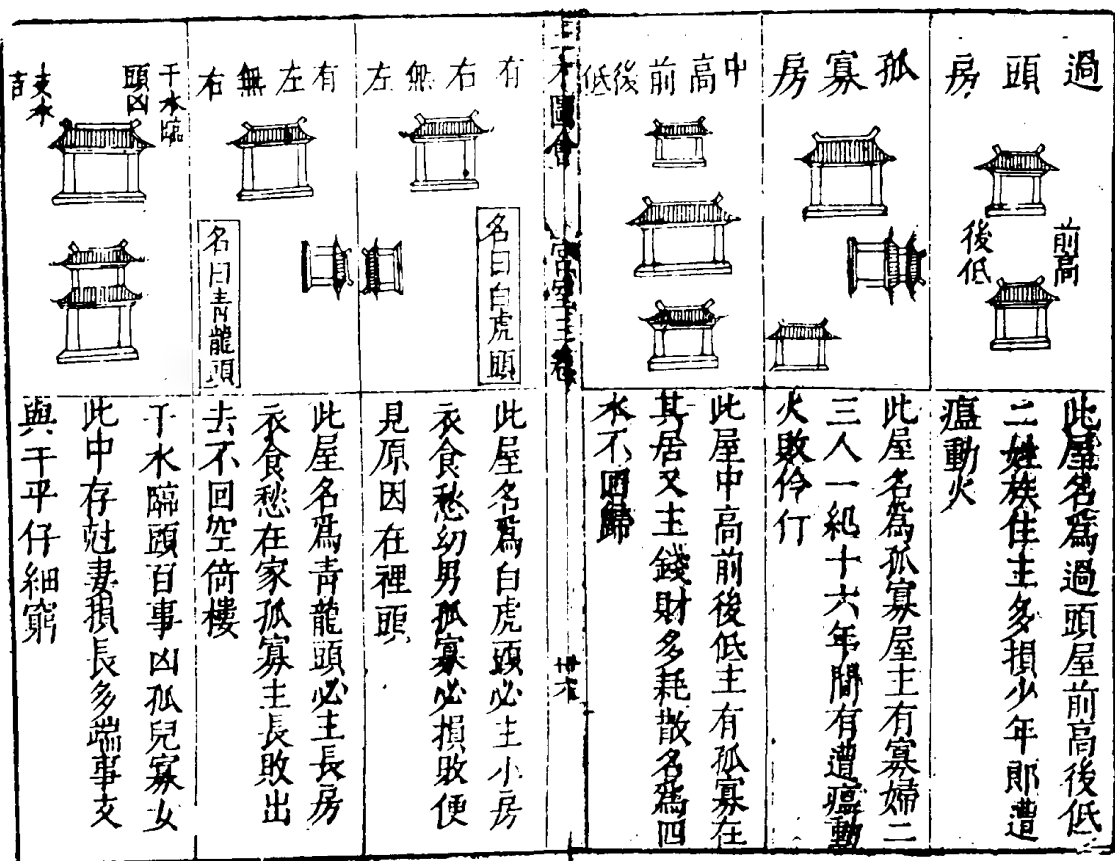 過頭房
前高
後低
此屋名爲過頭屋前高後低
二姓族住主多損少年郎遭
瘟動火
孤寡房
此屋名爲孤寡屋主有寡婦二
三人一紀十六年間有遭瘟動
火敗伶仃
中高前後低
此屋中高前後低主有孤寡在
其居又主錢財多耗散名爲四
水不回歸
三才圖會
宮室三卷
有右無左
名曰白虎頭
此屋名爲白虎頭必主小房
衣食愁幼男孤寡必損敗便
見原因在裡頭
有左無右
名曰青龍頭
此屋名爲青龍頭必主長房
衣食愁在家孤寡主長敗出
去不回空倚樓
干水臨
頭凶
支水
吉
干水臨頭百事凶孤兒寡女
此中存尅妻損長多端事支
與干平仔細窮